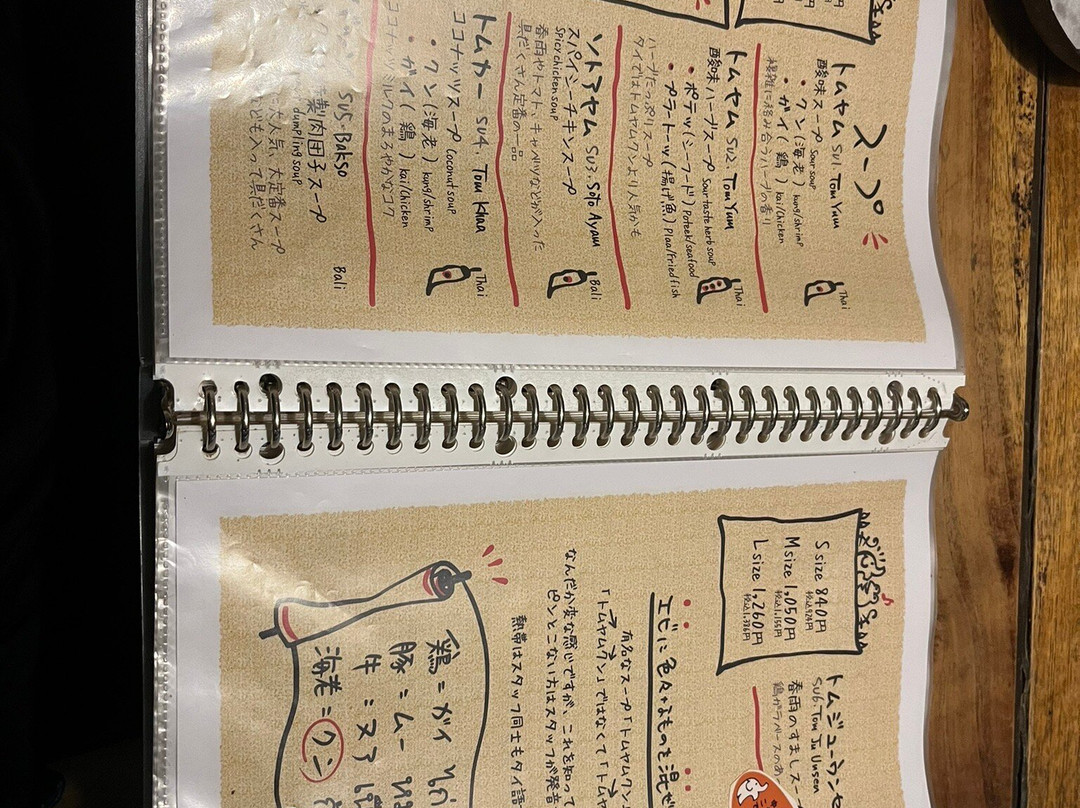 スープ
トムヤム SU1. Tom Yum
Thai
酸味スープ Sour soup
・クン(海老) kung/shrimp
・ガイ(鶏) kai/chicken
複雑に絡み合うハーブの香り
トムヤム SU2. Tom Yum
Thai
酸味ハーブスープ Sour taste herb soup
・ポテッ(シーフード) Poteek/seafood
・プラートーッ(揚げ魚) Plaa/Fried fish
ハーブたっぷりスープ
タイではトムヤムクンより人気かも
ソトアヤム SU3. Soto Ayam
Bali
スパイシーチキンスープ
Spicy chicken soup
春雨やトマト、キャベツなどが入った
具だくさん定番の一品
トムカー SU4. Tom Khaa
Thai
ココナッツスープ Coconut soup
・クン(海老) kung/shrimp
・ガイ(鶏) kai/chicken
ココナッツミルクのまろやかなコク
SU5. Bakso
Bali
製肉団子スープ
dumpling soup
大人気、大定番スープ
ども入って具だくさん
S size 840円
税込924円
M size 1,050円
税込1,155円
L size 1,260円
税込1,386円
トムジューウンセ
SU6. Tom Ju Unsen
春雨のすましスー
鶏ガラベースのあ
エビに色々なものを混ぜ
有名なスープ「トムヤムクン
「トムヤムクン」ではなくて「トムヤ
なんだか変な感じですが、これを知って
ピンとこない方はスタッフが発音
熱帯はスタッフ同士もタイ語
鶏=ガイ
豚=ムー
牛=ヌア
海老=クン